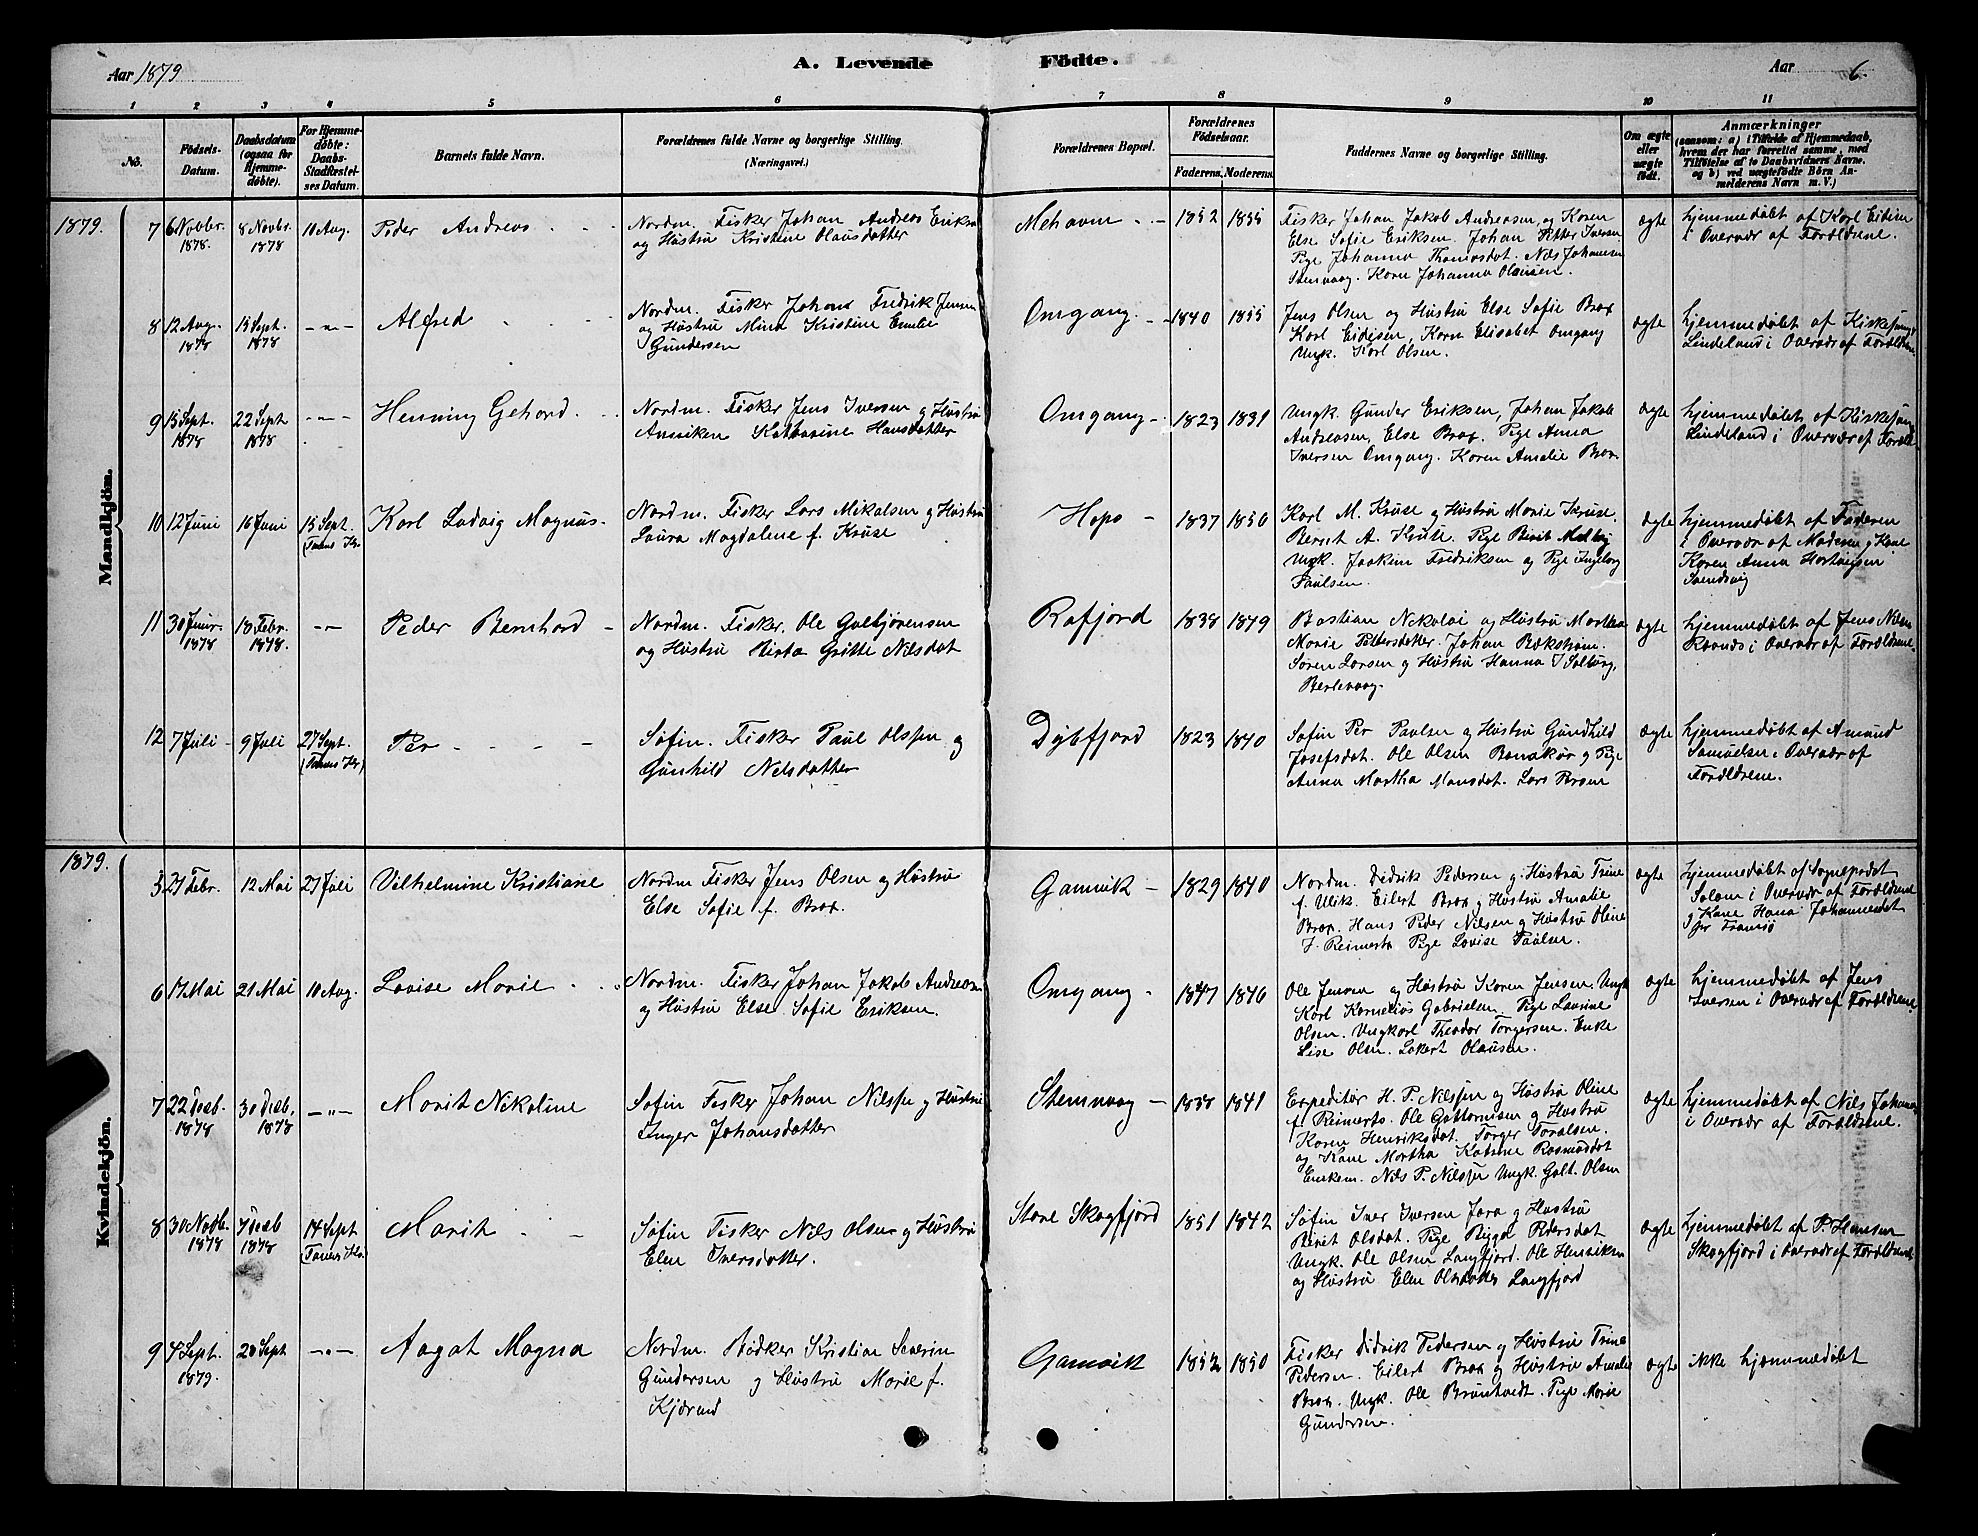 Aar 1879
A. Levende Födte.
Aar 6.
1 2 3 4 5 6 7 8 9 10 11
No.
Födsels-
Datum.
Daabsdatum
(ogsaa for
Hjemme-
döbte).
For Hjemme-
döbte:
Daabs-
Stadfæstel-
ses Datum.
Barnets fulde Navn.
Forældrenes fulde Navne og borgerlige Stilling.
(Næringsvei.)
Forældrenes Bopæl.
Forældrenes
Födselsaar.
Faderens. Moderens.
Faddernes Navne og borgerlige Stilling.
Om ægte
eller
uægte
födt.
Anmærkninger
(saasom: a) i Tilfælde af Hjemmedaab,
hvem der har forrettet samme, med
Tilföielse af to Daabsvidners Navne.
og b) ved uægtefödte Börn An-
melderens Navn m. V.)
1879.
Mandkjön.
7 6 Novbr. 1878. 8 Novbr. 1878 10 Aug.
Peder Andreas
Nordm. Fisker Johan Andreas Eriksen
og Hustru Kristine Olausdatter
Mehavn 1852 1855
Fisker Johan Jakob Andreasen, og Konen
Else Sofie Eriksen. Johan Petter Iversen
Pige Johanna Thomasdat. Nils Johansen
Stenvaag. Kone Johanna Olausen.
ægte
hjemmedøbt af Karl Eidien
i Overvær af Forældrene.
8 12 Aug. 1878 15 Sept. 1878 -"-
Alfred
Nordm. Fisker Johan Fredrik Jensen
og Hustru Mina Kristine Emilie
Gundersen
Omgang. 1840 1855
Jens Olsen og Hustru Else Sofie Brox
Karl Eidesen, Karen Elisabet Omgang
Ungk. Karl Olsen.
ægte
hjemmedøbt af Kirkesanger
Lindeland i Overvær af Forældrene
9 15 Sept. 1878 22 Sept 1878 -"-
Henning Gehard.
Nordm. Fisker Jens Iversen og Hustru
Anniken Katharine Hansdatter
Omgang 1823 1831
Ungk. Gunder Eriksen, Johan Jakob
Andreasen, Else Brox. Pige Anna
Iversen Omgang. Karen Amalie Brox.
ægte
hjemmedøbt af Kirkesang
Lindeland i Overvær af Foræld
10 12 Juni 16 Juni 15 Sept. (Tanens Kr.
Karl Ludvig Magnus
Nordm. Fisker Lars Mikalsen og Hustru
Laura Magdalene f. Kruse
Hops 1837 1850
Karl M. Kruse og Hustru Marie Kruse.
Bernt A. Kruse. Pige Berit Melby
Ungk. Joakim Fredriksen og Pige Ingeborg
Paulsen.
ægte
hjemmedøbt af Faderen
i Overvær af Moderen og Kone
Karen Anna Hartvigsen
Sandvig
11 30 Januar. 1878 10 Febr. 1878. -"-
Peder Bernhard
Nordm. Fisker. Ole Gulbjørensen
og Hustru Berta Gritte Nilsdat
Rafjord 1838 1849
Bastian Nikolai og Hustru Martha
Marie Pettersdatter. Johan Bekstrøm.
Søren Larsen og Hustru Hanna J Solberg,
Berlevaag.
ægte
hjemmedøbt af Jens Nilsen
Raanes i Overvær af Forældrene.
12 7 Juli 9 Juli 27 Sept. (Tanens Kr)
Per
Søfin. Fisker Paul Olssen og
Gunhild Nilsdatter
Dybfjord 1823 1840
Søfin Per Paulsen og Hustru Gundhild
Josefsdat. Ole Olsen Bonakas og Pige
Anna Martha Monsdat. Lars Brun
ægte
hjemmedøbt af Amund
Samuelsen i Overvær af
Forældrene.
1879.
Kvindekjön.
5 27 Febr. 12 Mai 27 Juli
Vilhelmine Kristiane
Nordm Fisker Jens Olsen og Hustru
Else Sofie f. Brox.
Gamvik 1829 1840
Nordm. Didrik Pedersen og Hustru Trine
f. Ulik. Eilert Brox og Hustru Amalie
Brox. Hans Peder Nilsen og Hustru Oline
f. Reimerts Pige Lovise Paulsen.
ægte
hjemmedøbt af Sogneprest
Salom i Overvær af Forældrene
og Kone Hana Johannesdat
fra Tromsø
6 17 Mai 21 Mai 10 Aug.
Lovise Marie
Nordm. Fisker Johan Jakob Andreasen
og Hustru Else Sofie Eriksen.
Omgang 1847 1846
Ole Jensen og Hustru Karen Jensen. Ungk
Karl Kornelius Gabrielsen, Pige Lavine
Olsen. Ungkarl Theodor Torgersen. Enke
Lise Olsen. Lokert Olausen.
ægte
hjemmedøbt af Jens
Iversen i Overvær af Forældrene.
7 22 Decb. 1878 30 Decb. 1878 -"-
Marit Nikoline
Søfin Fisker Johan Nilssen og Hustru
Inger Johansdatter
Stenvaag 1838 1841
Expeditør H. P. Nilssen og Hustru Oline
f. Reimerts. Ole Guttormsen og Hustru
Karen Henriksdat. Torger Toralsen.
og Kone Martha Katrine Rasmusdat
Enkem. Nils P. Nilssen Ungk. Galt. Olsen
ægte
hjemmedøbt af Nils Johansen
i Overvær af Forældrene.
8 30 Novb. 1878 7 Decb 1878 14 Sept (Tanens Kr.
Marit
Søfin Fisker Nils Olsen og Hustru
Elen Iversdatter.
Store Skogfjord 1851 1842
Søfin Iver Iversen Jara og Hustru
Berit Olsdat. Pige Bigga Pedersdat
Ungk. Ole Olsen Langfjord. Ole Henriksen
og Hustru Elen Olsdatter Langfjord
ægte
hjemmedøbt af P. Hansen
Skogfjord i Overvær af Forældrene
9 4 Sept. 1879. 20 Sept -"-
Aagot Magna
Nordm. Bødker Kristian Severin
Gundersen og Hustru Marie f.
Kjørand
Gamvik 1852 1850
Fisker Didrik Pedersen og Hustru Trine
Pedersen. Eilert Brox og Hustru Amalie
Brox. Ungk. Ole Brantvedt. Pige Marie
Gundersen.
ægte
ikke hjemmedøbt